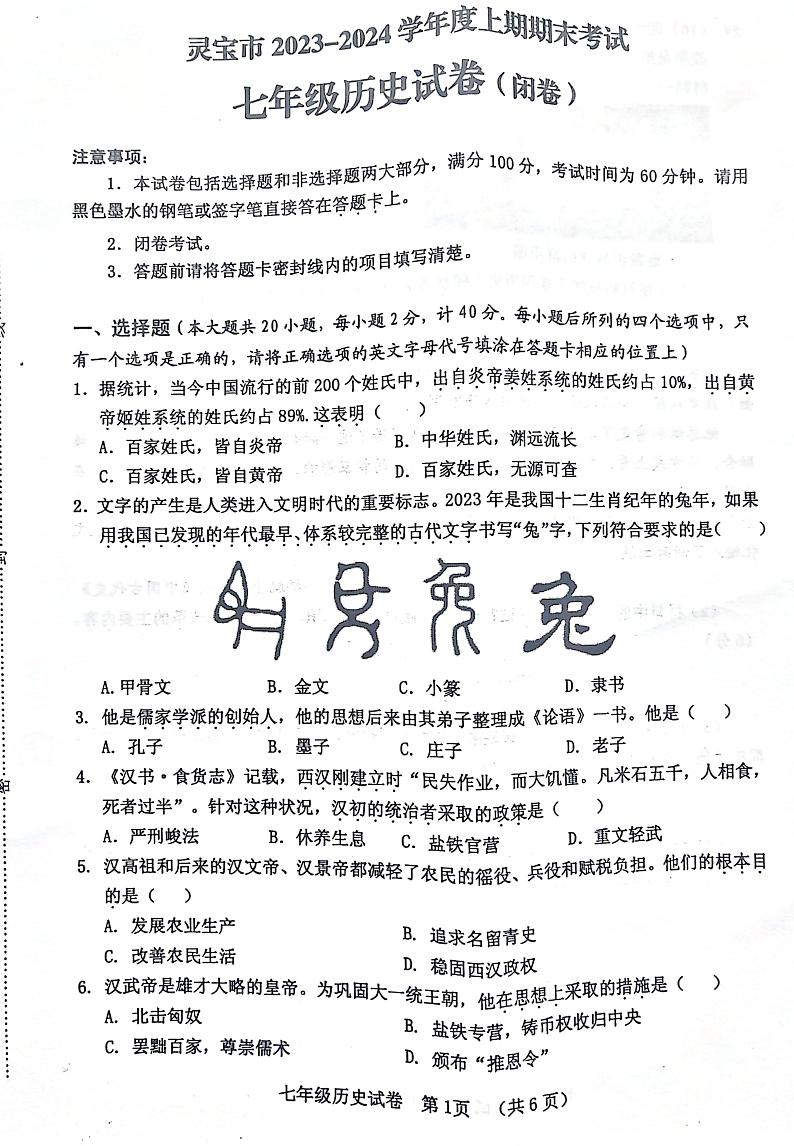 灵宝市 2023-2024 学年度上期期末考试
七年级历史试卷（闭卷）
注意事项：
1．本试卷包括选择题和非选择题两大部分，满分 100 分，考试时间为 60 分钟。请用
黑色墨水的钢笔或签字笔直接答在答题卡上。
2．闭卷考试。
3．答题前请将答题卡密封线内的项目填写清楚。
一、选择题（本大题共 20 小题，每小题 2 分，计 40 分。每小题后所列的四个选项中，只
有一个选项是正确的，请将正确选项的英文字母代号填涂在答题卡相应的位置上）
1．据统计，当今中国流行的前 200 个姓氏中，出自炎帝姜姓系统的姓氏约占 10%，出自黄
帝姬姓系统的姓氏约占 89%.这表明（　　）
A．百家姓氏，皆自炎帝　B．中华姓氏，渊远流长
C．百家姓氏，皆自黄帝　D．百家姓氏，无源可查
2．文字的产生是人类进入文明时代的重要标志。2023 年是我国十二生肖纪年的兔年，如果
用我国已发现的年代最早、体系较完整的古代文字书写“兔”字，下列符合要求的是（　　）
A.甲骨文　B．金文　C．小篆　D．隶书
3．他是儒家学派的创始人，他的思想后来由其弟子整理成《论语》一书。他是（　　）
A．孔子　B．墨子　C．庄子　D．老子
4．《汉书·食货志》记载，西汉刚建立时“民失作业，而大饥馑。凡米石五千，人相食，
死者过半”。针对这种状况，汉初的统治者采取的政策是（　　）
A．严刑峻法　B．休养生息　C．盐铁官营　D．重文轻武
5．汉高祖和后来的汉文帝、汉景帝都减轻了农民的徭役、兵役和赋税负担。他们的根本目
的是（　　）
A．发展农业生产　B．追求名留青史
C．改善农民生活　D．稳固西汉政权
6．汉武帝是雄才大略的皇帝。为巩固大一统王朝，他在思想上采取的措施是（　　）
A．北击匈奴　B．盐铁专营，铸币权收归中央
C．罢黜百家，尊崇儒术　D．颁布“推恩令”
七年级历史试卷　第 1页　（共 6 页）